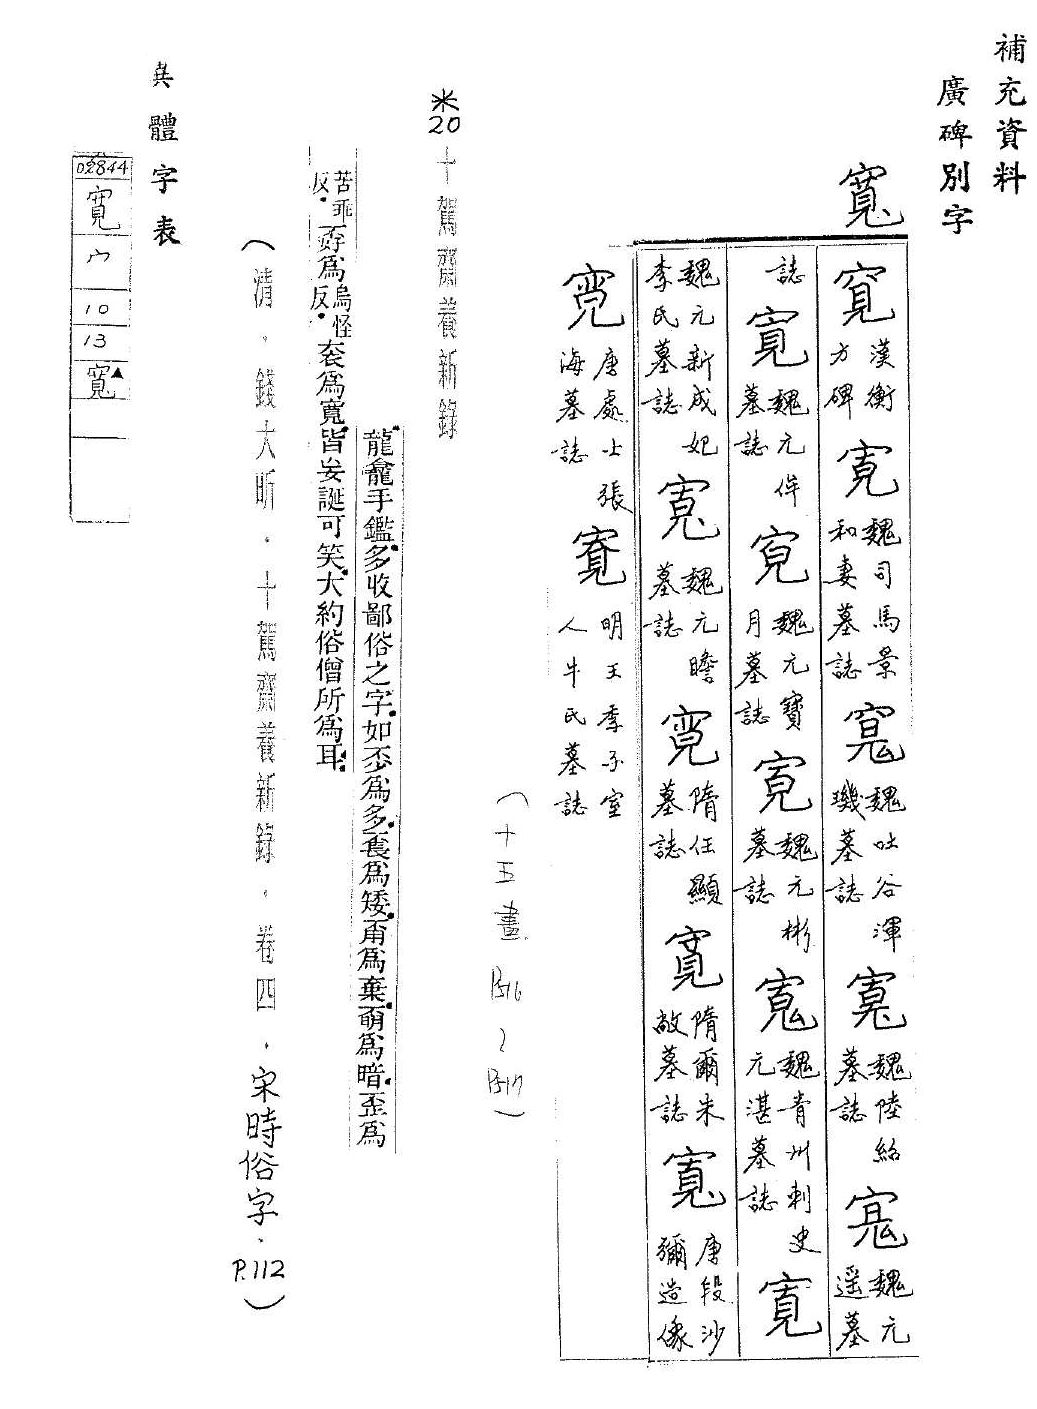 補充資料
廣碑別字
寬
寬 漢衡方碑 寬 魏司馬景和妻墓誌 寬 魏吐谷渾璣墓誌 寬 魏陸紹墓誌 寬 魏元遥墓
誌 寬 魏元侔墓誌 寬 魏元寶月墓誌 寬 魏元彬墓誌 寬 魏青州刺史元湛墓誌 寬
魏元新成妃李氏墓誌 寬 魏元瞻墓誌 寬 隋任顯墓誌 寬 隋爾朱敞墓誌 寬 唐段沙彌造像
寬 唐處士張海墓誌 寬 明王季子室人牛氏墓誌
(十五畫 P.516~P.517)
※20
十駕齋養新錄
龍龕手鑑多收鄙俗之字如𡖈為多𡕩為矮甭為棄𣊟為暗歪為
苦乖反孬為烏怪反奀為寬皆妄誕可笑大約俗僧所為耳
(清.錢大昕.十駕齋養新錄.卷四.宋時俗字.P.112)
異體字表
02844
寬
宀
10
13
寬